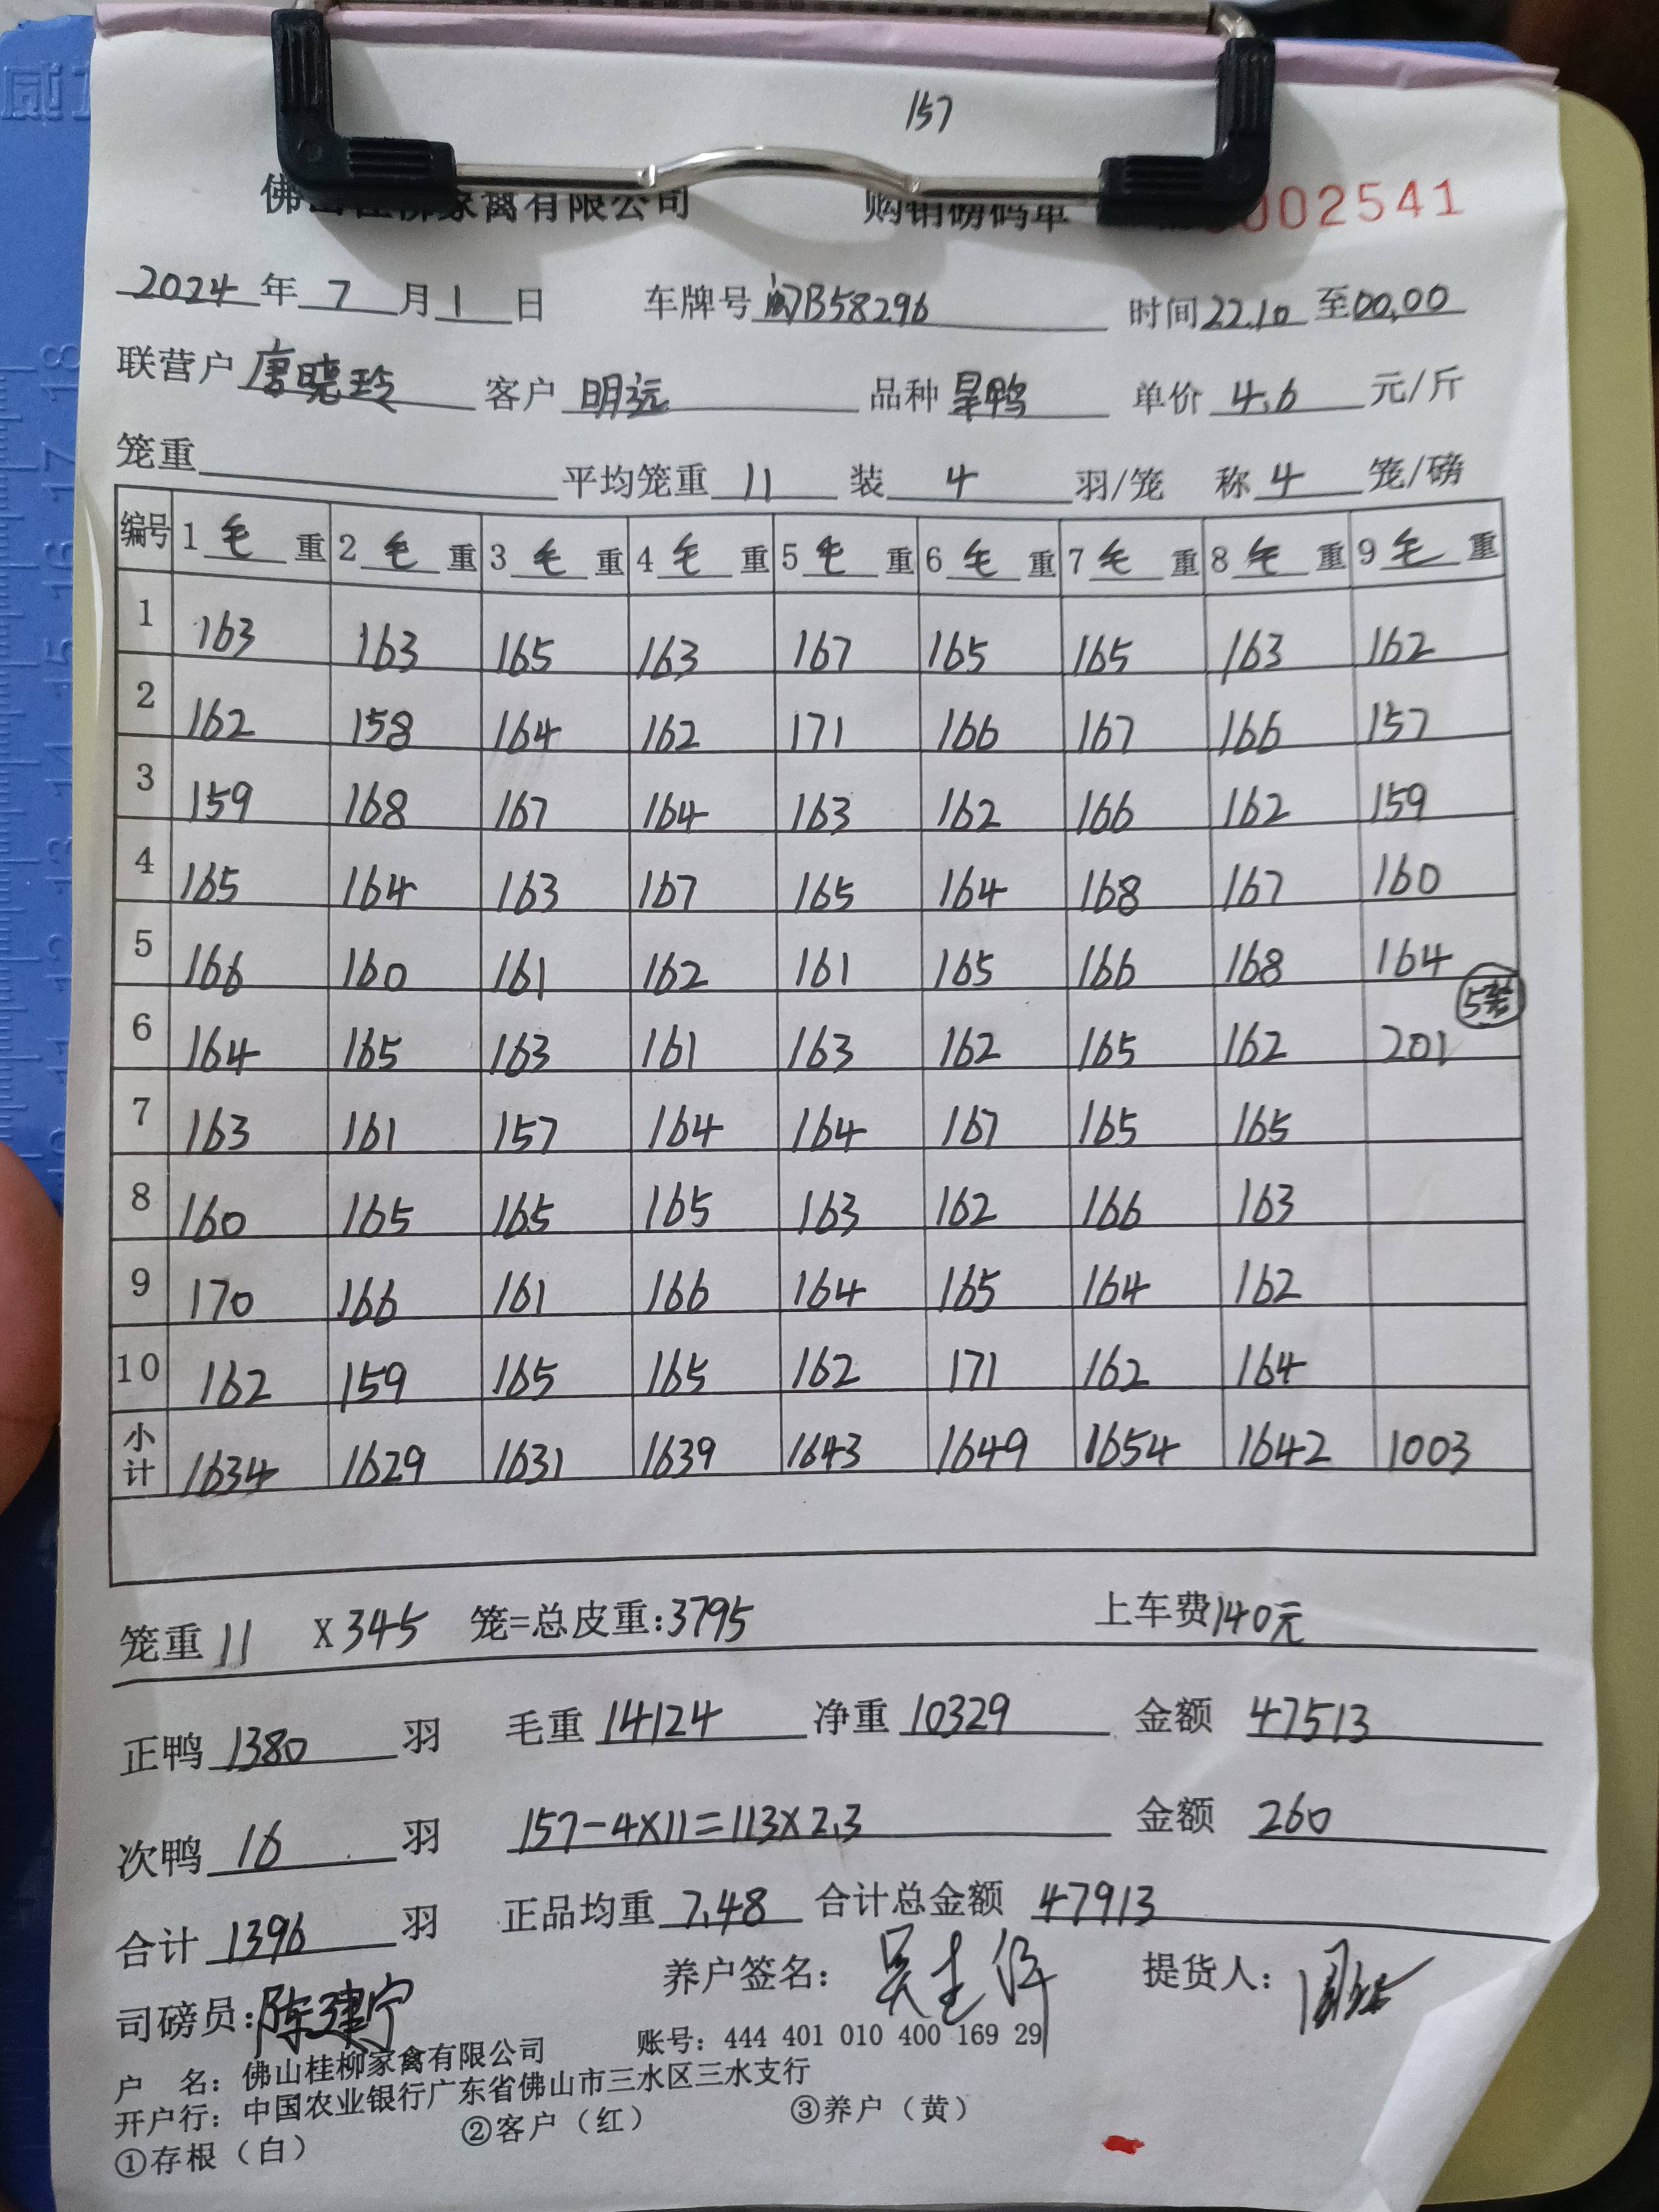 157
佛山桂柳家禽有限公司 购销磅码单 002541
2024年7月1日 车牌号 闽B58296 时间22.10至00.00
联营户 唐晓玲 客户 明远 品种 旱鸭 单价 4.6 元/斤
笼重 平均笼重 11 装 4 羽/笼 称 4 笼/磅
编号 1毛重 2毛重 3毛重 4毛重 5毛重 6毛重 7毛重 8毛重 9毛重
1 163 163 165 163 167 165 165 163 162
2 162 158 164 162 171 166 167 166 157
3 159 168 167 164 163 162 166 162 159
4 165 164 163 167 165 164 168 167 160
5 166 160 161 162 161 165 166 168 164
6 164 165 163 161 163 162 165 162 201 5笼
7 163 161 157 164 164 167 165 165
8 160 165 165 165 163 162 166 163
9 170 166 161 166 164 165 164 162
10 162 159 165 165 162 171 162 164
小计 1634 1629 1631 1639 1643 1649 1654 1642 1003
笼重 11 X 345 笼=总皮重:3795 上车费140元
正鸭 1380 羽 毛重 14124 净重 10329 金额 47513
次鸭 16 羽 157-4X11=113X2.3 金额 260
合计 1396 羽 正品均重 7.48 合计总金额 47913
司磅员:陈建宁 养户签名: 提货人:
户 名: 佛山桂柳家禽有限公司 账号: 444 401 010 400 169 29
开户行: 中国农业银行广东省佛山市三水区三水支行
①存根(白) ②客户(红) ③养户(黄)